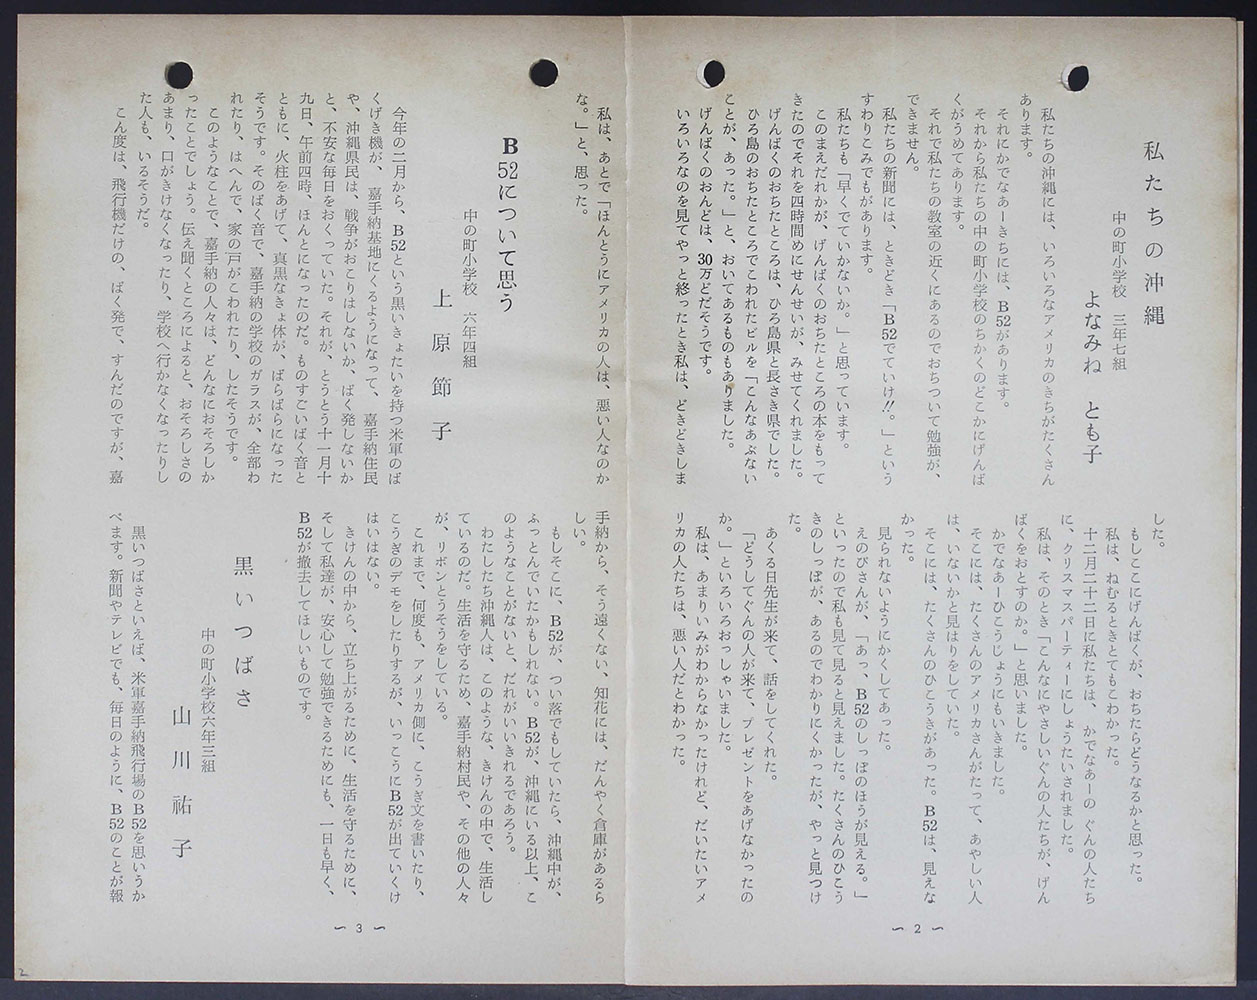 私たちの沖縄
中の町小学校　三年七組
よなみね　とも子
私たちの沖縄には、いろいろなアメリカのきちがたくさん
あります。
それにかでなあーきちには、B52があります。
それから私たちの中の町小学校のちかくのどこかにげんば
くがうめてあります。
それで私たちの教室の近くにあるのでおちついて勉強が、
できません。
私たちの新聞には、ときどき「B52でていけ!!。」という
すわりこみでもがあります。
私たちも「早くでていかないか。」と思っています。
このまえだれかが、げんばくのおちたところの本をもって
きたのでそれを四時間めにせんせいが、みせてくれました。
げんばくのおちたところは、ひろ島県と長さき県でした。
ひろ島のおちたところでこわれたビルを「こんなあぶない
ことが、あった。」と、おいてあるものもありました。
げんばくのおんどは、30万どだそうです。
いろいろなのを見てやっと終ったとき私は、どきどきしま
した。
もしここにげんばくが、おちたらどうなるかと思った。
私は、ねむるときとてもこわかった。
十二月二十二日に私たちは、かでなあーの ぐんの人たち
に、クリスマスパーティーにしょうたいされました。
私は、そのとき「こんなにやさしいぐんの人たちが、げん
ばくをおとすのか。」と思いました。
かでなあーひこうじょうにもいきました。
そこには、たくさんのアメリカさんがたって、あやしい人
は、いないかと見はりをしていた。
そこには、たくさんのひこうきがあった。B52は、見えな
かった。
見られないようにかくしてあった。
えのびさんが、「あっ、B52のしっぽのほうが見える。」
といったので私も見て見ると見えました。たくさんのひこう
きのしっぽが、あるのでわかりにくかったが、やっと見つけ
た。
あくる日先生が来て、話をしてくれた。
「どうしてぐんの人が来て、プレゼントをあげなかったの
か。」といろいろおっしゃいました。
私は、あまりいみがわからなかったけれど、だいたいアメ
リカの人たちは、悪い人だとわかった。
〜 2 〜
私は、あとで「ほんとうにアメリカの人は、悪い人なのか
な。」と、思った。
B52について思う
中の町小学校　六年四組
上原節子
今年の二月から、B52という黒いきょたいを持つ米軍のば
くげき機が、嘉手納基地にくるようになって、嘉手納住民
や、沖縄県民は、戦争がおこりはしないか、ばく発しないか
と、不安な毎日をおくっていた。それが、とうとう十一月十
九日、午前四時、ほんとになったのだ。ものすごいばく音と
ともに、火柱をあげて、真黒なきょ体が、ばらばらになった
そうです。そのばく音で、嘉手納の学校のガラスが、全部わ
れたり、はへんで、家の戸がこわれたり、したそうです。
このようなことで、嘉手納の人々は、どんなにおそろしか
ったことでしょう。伝え聞くところによると、おそろしさの
あまり、口がきけなくなったり、学校へ行かなくなったりし
た人も、いるそうだ。
こん度は、飛行機だけの、ばく発で、すんだのですが、嘉
手納から、そう遠くない、知花には、だんやく倉庫があるら
しい。
もしそこに、B52が、つい落でもしていたら、沖縄中が、
ふっとんでいたかもしれない。B52が、沖縄にいる以上、こ
のようなことがないと、だれがいいきれるであろう。
わたしたち沖縄人は、このような、きけんの中で、生活し
ているのだ。生活を守るため、嘉手納村民や、その他の人々
が、リボンとうそうをしている。
これまで、何度も、アメリカ側に、こうぎ文を書いたり、
こうぎのデモをしたりするが、いっこうにB52が出ていくけ
はいはない。
きけんの中から、立ち上がるために、生活を守るために、
そして私達が、安心して勉強できるためにも、一日も早く、
B52が撤去してほしいものです。
黒いつばさ
中の町小学校六年三組
山川祐子
黒いつばさといえば、米軍嘉手納飛行場のB52を思いうか
べます。新聞やテレビでも、毎日のように、B52のことが報
〜 3 〜
2